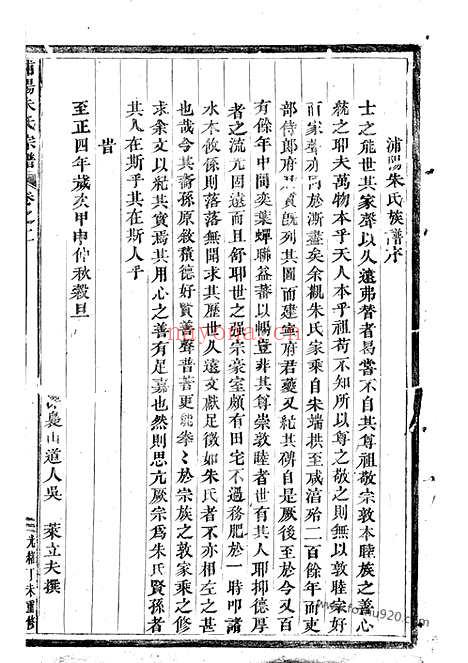 浦陽朱氏族譜序
士之能世其家聲以久遠弗替者曷嘗不自其尊祖敬宗敦本睦族之善心
發之耶夫萬物本乎天人本乎祖苟不知所以尊之敬之則無以敦睦宗好
而家聲亦局於漸盡矣余觀朱氏家乘自朱端拱至咸淳殆二百餘年而吏
部侍郎府君質既列其圖而建寧府君夔又紀其碑自是厥後至於今又百
有餘年中間奕葉蟬聯益蕃以暢豈非其尊崇敦睦者世有其人耶抑德厚
者之流光固遠而且舒耶世之強宗豪室頗有田宅不過務肥於一時叩諸
水木攸係則落落無聞求其歷世久遠文獻足徵如朱氏者不亦相左之甚
也哉今其裔孫原敘積德好賢善聲昔著更能拳〻於宗族之敦家乘之修
求余文以紀其實焉其用心之善有足嘉也然則思亢厥宗為朱氏賢孫者
其人在斯乎其在斯人乎
旹
至正四年歲次甲申仲秋穀旦
梟山道人吳 萊立夫撰
浦陽朱氏宗譜 卷之一
光緒丁未重修
miyona.cn
www.fo920.com